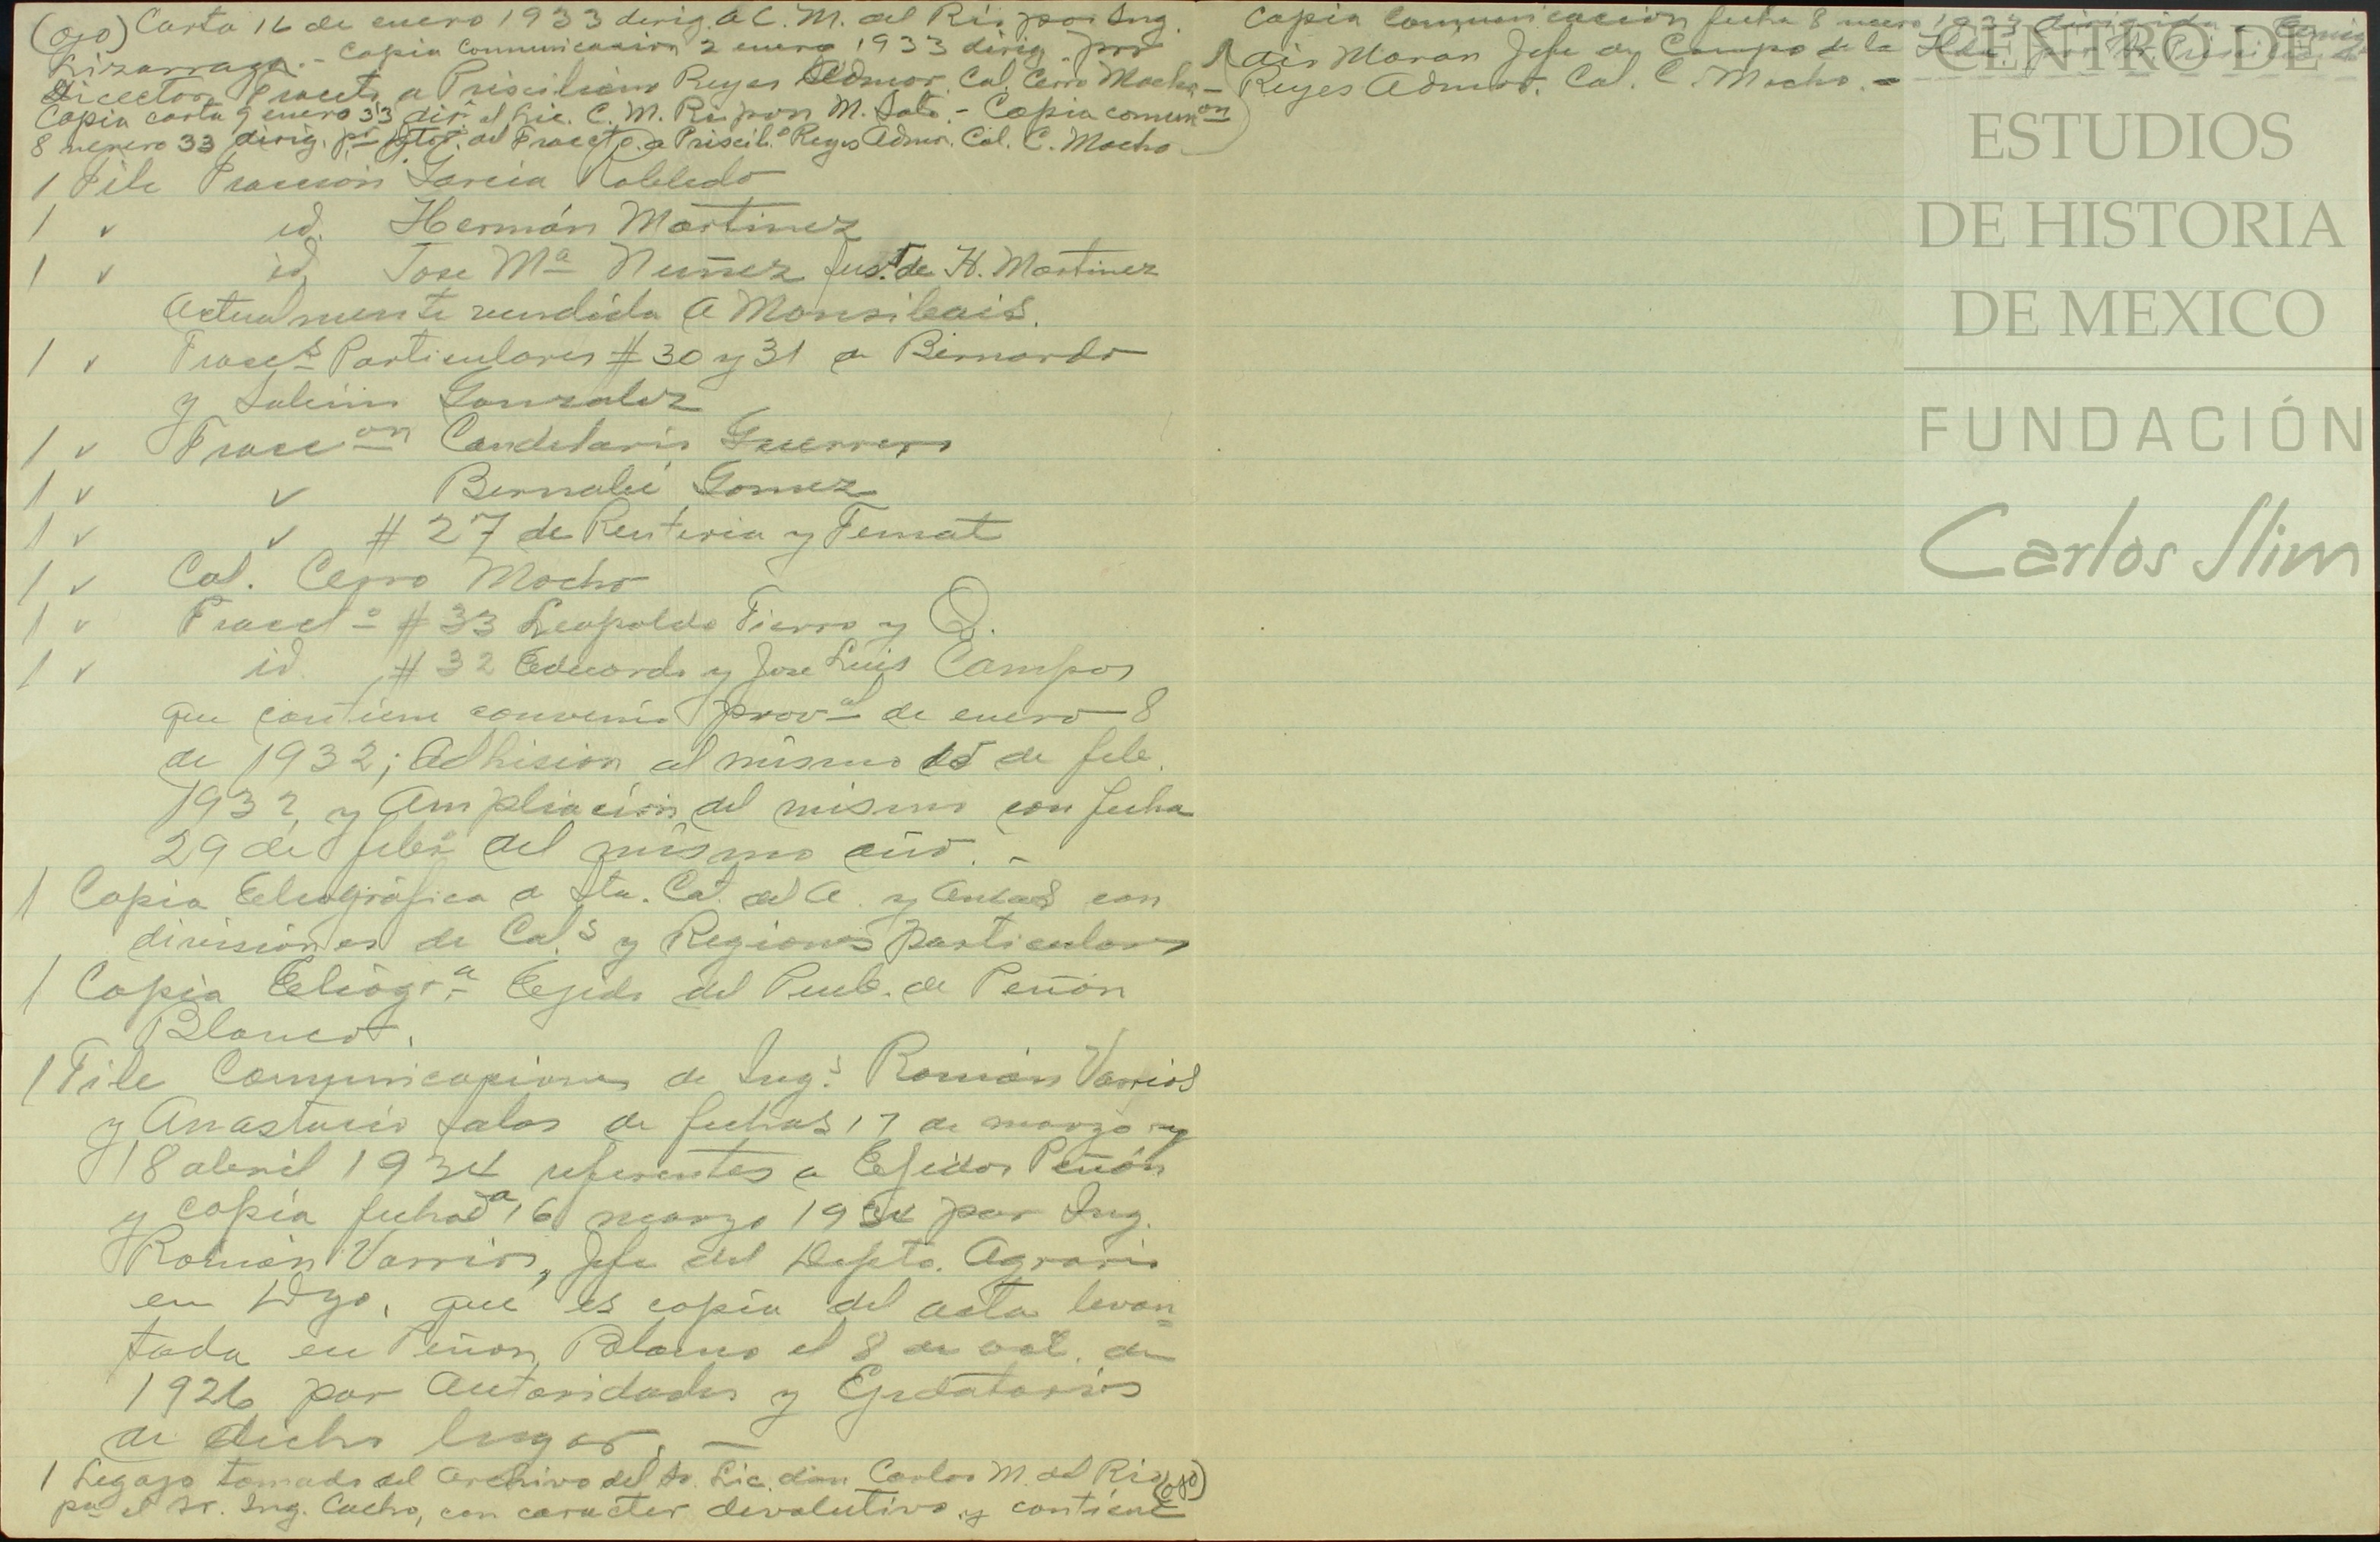 (ojo) Carta 16 de enero 1933 dirig. a C. M. del Rio por Ing.
Lizarraga. - Copia Comunicacion 2 enero 1933 dirig. por
Director Fraccto a Prisciliano Reyes Admor. Cal. Cerro Mocho -
Copia carta 9 enero 33 dir. el Lic. C. M. Rio por M. Soto. - Copia comunon
8 enero 33 dirig. pr del Fraccto. a Priscilo Reyes Admor. Cal. C. Mocho
1 File Fraccion Garcia Robledo
1 v id. Hermán Martinez
1 v id. Jose Ma Nuñez de H. Martinez
Actualmente vendida a Monsibais.
1 v Fraccs Particulares # 30 y 31 a Bernardo
y Gonzalez
1 v Fraccon Candelario Guerrero
1 v v Bernabé Gomez
1 v v # 27 de Renteria y Temat
1 v Cal. Cerro Mocho
1 v Fracto # 33 Leopoldo Fierro y Q.
1 v id. # 32 Eduardo y Jose Luis Campos
que contiene convenio proval de enero 8
de 1932; Adhision al mismo 15 de feb.
1932, y Ampliación del mismo con fecha
29 de febo del mismo año. -
1 Copia Eeliográfica a Sta. Cat. del A. y Anexas con
divisiones de Cals y Regiones particulares
1 Copia Eeliogra Egido del Pueb. de Peñón
Blanco.
1 File Comunicaciones de Ings Román Varrios
y Anastacio Salas de fechas 17 de marzo y
18 abril 1934 referentes a Egidos Peñón
y copia fechada 16 marzo 1934 por Ing.
Román Varrios, Jefe del Depto. Agrario
en Dgo. que es copia del acta levan=
tada en Peñon Blanco el 8 de oct. de
1926 por Autoridades y Egidatarios
de dicho lugar. -
1 Legajo tomado del Archivo del Sr. Lic. don Carlos M. del Rio (ojo)
por el Sr. Ing. Cacho, con caracter devolutivo y contiene
Copia Comunicacion fecha 8 enero 1933 dirigida
Moran Jefe de Campo de la
Reyes Admor. Cal. C. Mocho. -
CENTRO DE
ESTUDIOS
DE HISTORIA
DE MEXICO
FUNDACIÓN
Carlos Slim